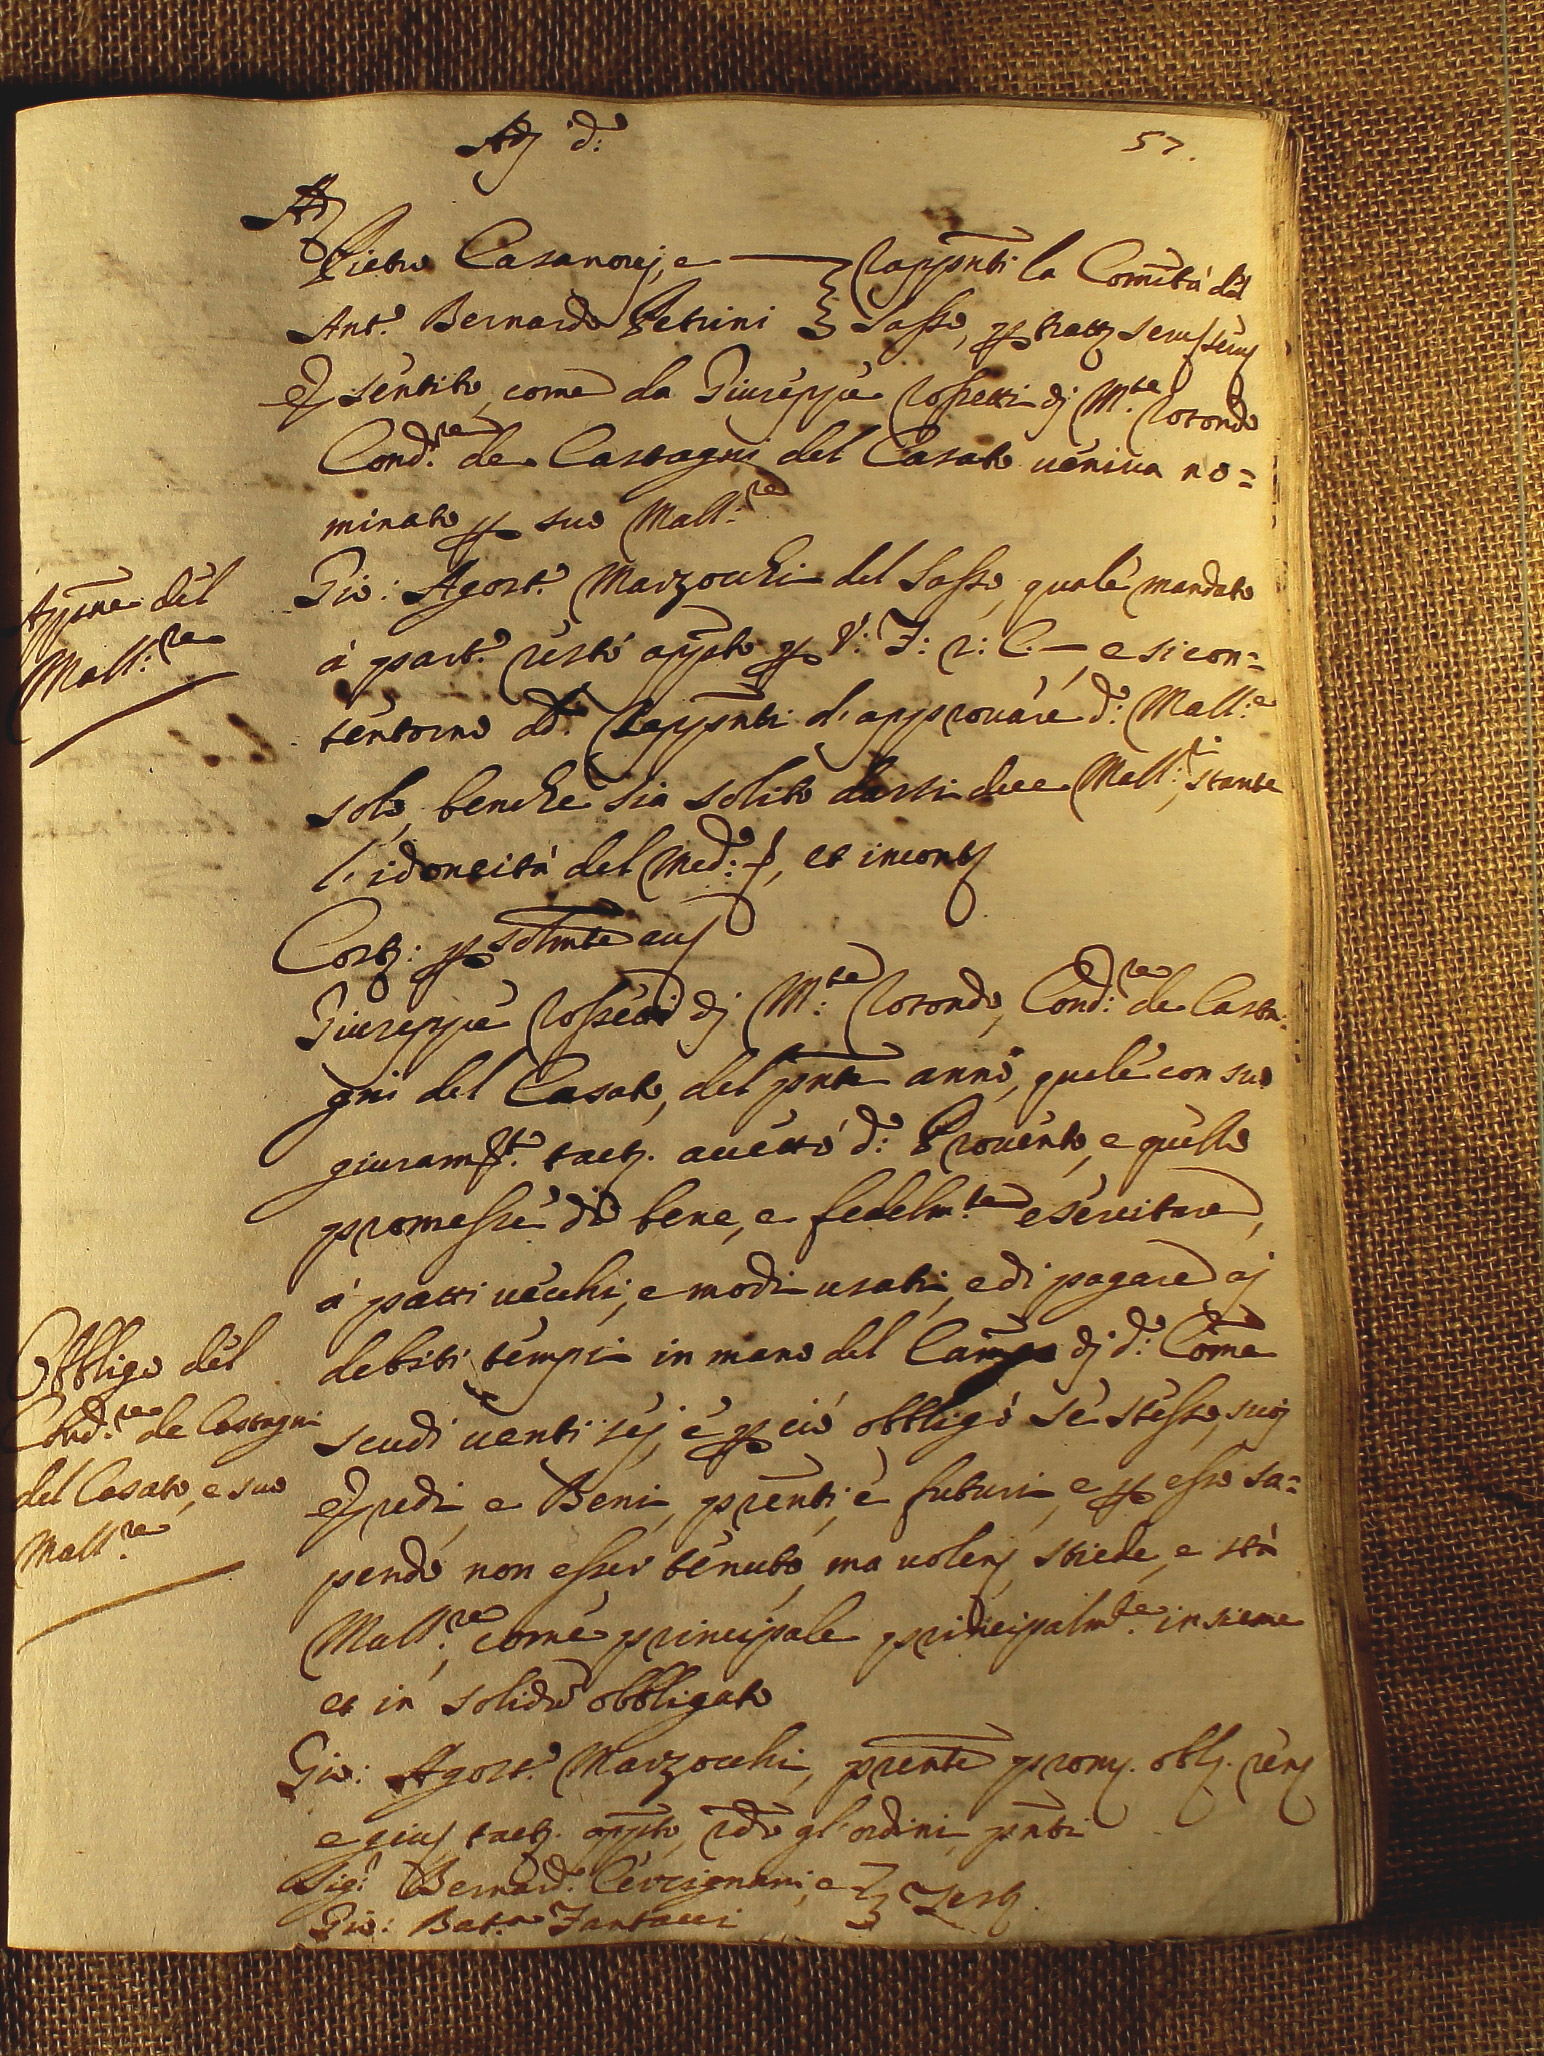 Adj d.º
57.
Adj
Pietro Casanovi, e Rapp̃nti la Com̃tà del
Ant.º Bernardo Petrini Sasso, p tratt serv serv
E sentito, come da Giuseppe Rossetti dj M.te Rotondo
Cond.re de Castagni del Casato veniva no=
minato p suo Mall:re
App̃ne del
Mall:re
Gio: Agost.º Marzocchi del Sasso, quale mandato
à part.º restò app̃to p V: F: 2: C.— e si con=
tentorno d.i Rapp̃nti d'approvare d.º Mall:e
solo, benche sia solito darsi due Mall:ri, stante
l'idoneità del Med:º, et incont
Cost: p solm̃te
Giuseppe Rossetti dj M:te Rotondo, Cond:re de Casta=
gni del Casato, del p̃nte anno, quale con suo
giuram.to tact. accettò d.º Provento, e quello
promesse di bene, e fedelm.te esercitare,
à patti vecchi, e modi usati, e di pagare aj
debiti tempi in mano del Cam̃go dj d.º Com̃e
scudi venti sej, e p ciò obbligò se stesso, suoj
Eredi, e Beni, prẽnti, e futuri, e p esso sa=
pendo non esser tenuto, ma volens stiede, e stà
Mall:re come principale principalm.te insieme
et in solido obbligato
Obbligo del
Cond.re de Castagni
del Casato, e suo
Mall.re
Gio: Agost.º Marzocchi, prẽnte prom. obb. ren
e giu tact. app̃to, rd̃o gl'ordini p̃nti
Sig.r Bernard.º Cercignani, e Test.
Gio: Bat.a Fantacci